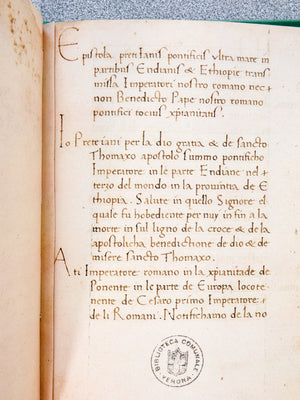 Epistola pretianis pontificis ultra mare in
partibus Endianis & Ethiopie trans
missa Imperatori nostro romano nec
non Benedicto Pape nostro romano
pontifici tocius xpianitatis.
Io Preteiani per la dio gratia & de sancto
Thomaxo apostolo summo pontificho
Imperatore in le parte Endiane nel
terzo del mondo in la prouintia de E
thiopia. Salute in quello Signore el
quale fu hobediente per nuy in fin a la
morte in sul ligno de la croce & de la
apostolicha benedictione de dio & de
misere sancto Thomaxo.
A ti Imperatore romano in la xpianitade de
Ponente in le parte de Europa locote
nente de Cesaro primo Imperatore
de li Romani. Notifichamo de la no
BIBLIOTECA COMUNALE
VERONA